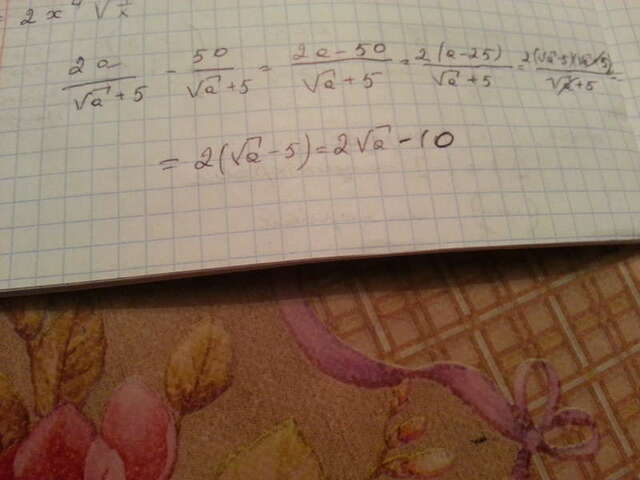 2x⁴√
2a/(√a + 5) - 50/(√a + 5) = (2a - 50)/(√a + 5) = 2(a - 25)/(√a + 5) = 2(√a - 5)(√a + 5)/(√a + 5) =
= 2(√a - 5) = 2√a - 10